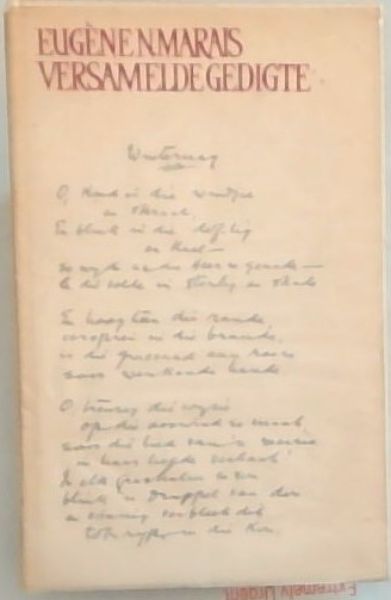 EUGÈNE N. MARAIS
VERSAMELDE GEDIGTE
Winternag
O, koud is die windjie
en skraal,
En blink in die dof-lig
en kaal
so wyd as die Heer se genade
lê die velde in sterlig en skade
En hoog in die rande
versprei in die brande,
is die grassaad aan roere
soos wenkende hande
O, treurig die wysie
op die ooswind se maat,
soos die lied van 'n meisie
in haar liefde verlaat
In elk grashalm se vou
blink 'n druppel van dou
en vinnig verbleek dit
tot ryp in die kou
Extremely Urgent